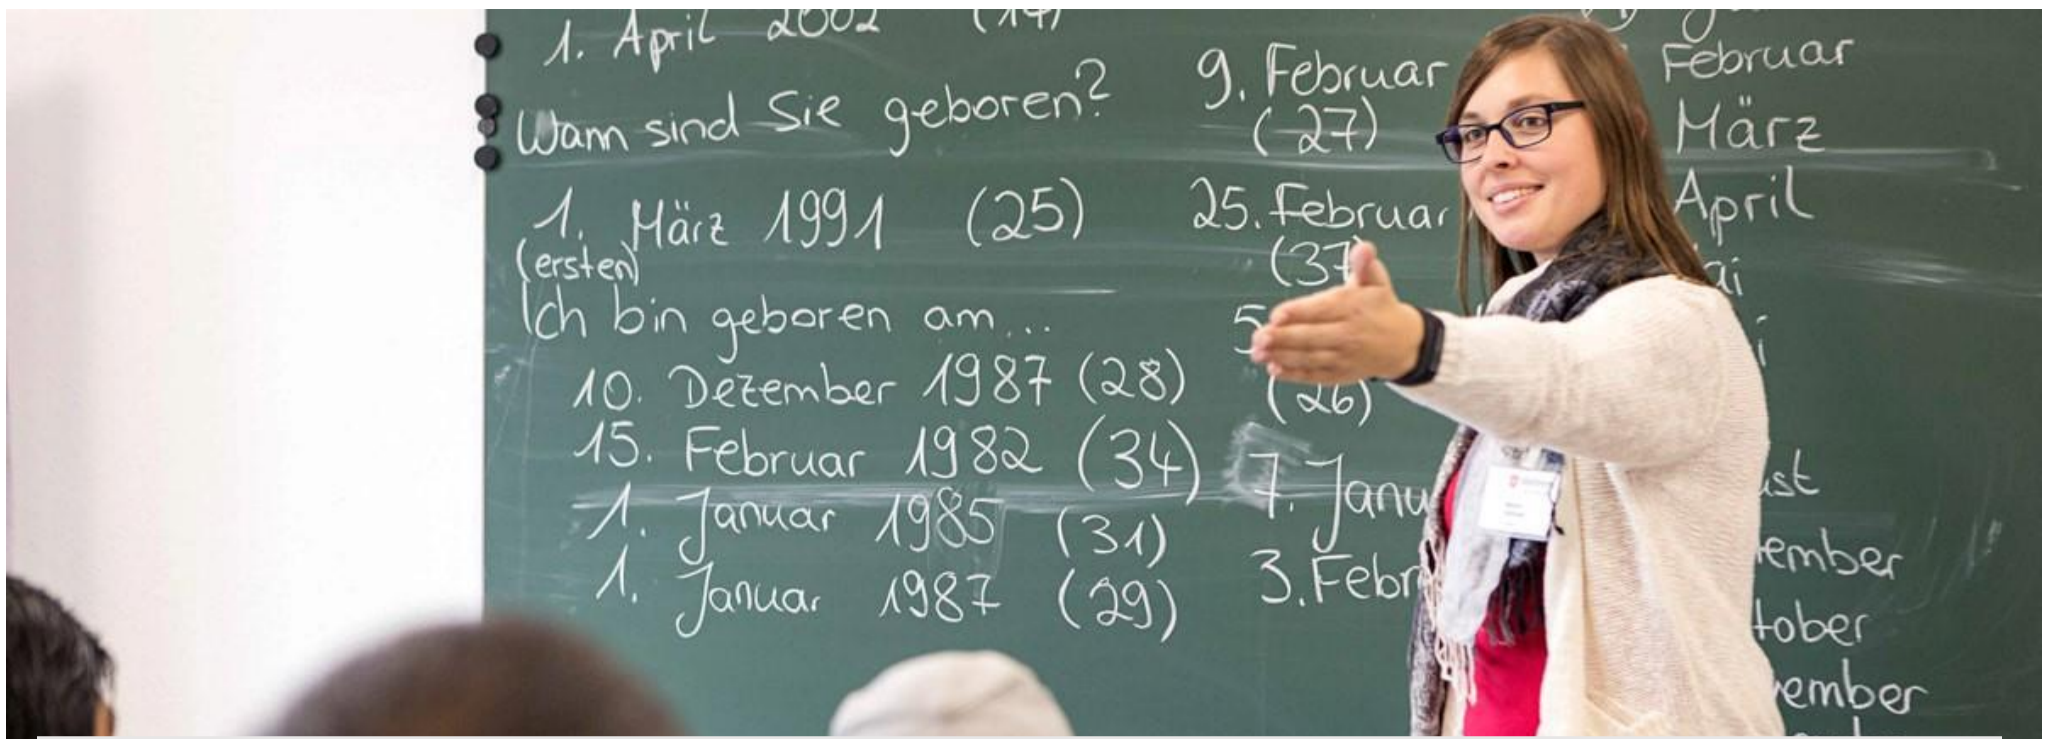 1. April 2002 (14)
Wann sind Sie geboren?
1. März 1991 (25)
(ersten)
Ich bin geboren am...
10. Dezember 1987 (28)
15. Februar 1982 (34)
1. Januar 1985 (31)
1. Januar 1987 (29)
9. Februar
(27)
25. Februar
(37
5
(26)
7. Janu
3. Febr
Februar
März
April
ai
i
ust
ember
tober
vember